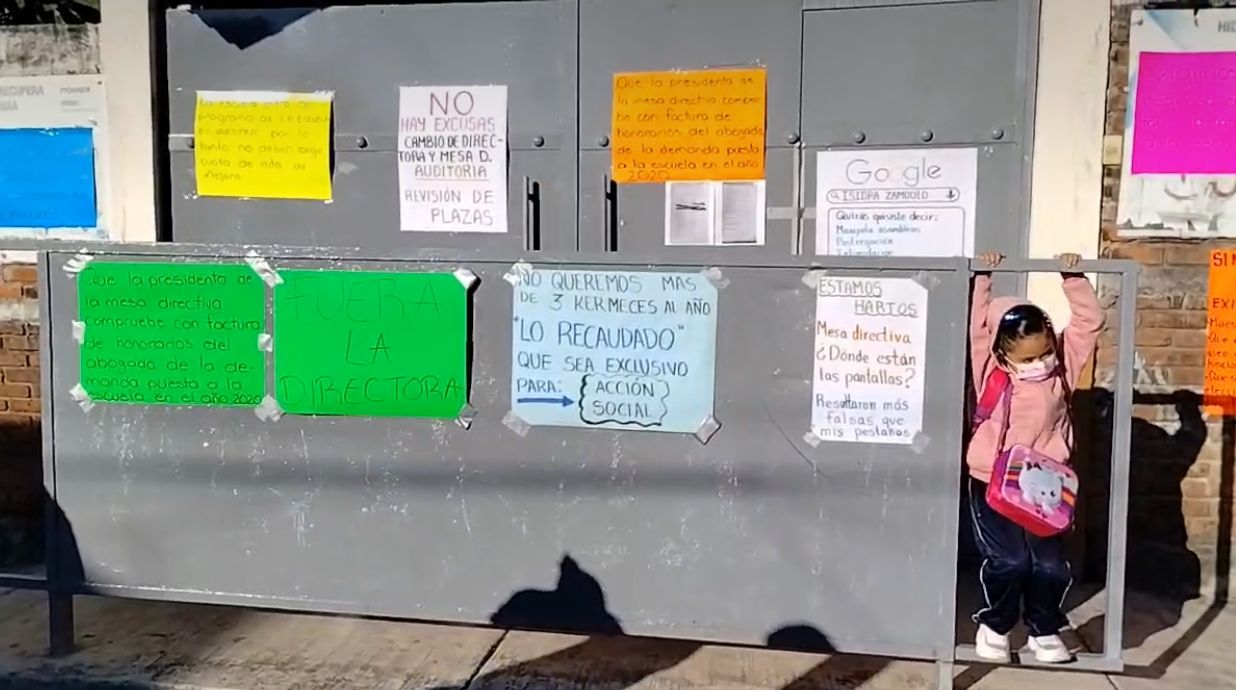 RECUPERA
La escuela entro al
programa de la escuela
es nuestra por lo
tanto no deben exigir
cuota de niño de
NO
HAY EXCUSAS
CAMBIO DE DIREC-
TORA Y MESA D.
AUDITORIA
REVISIÓN DE
PLAZAS
Que la presidenta de
la mesa directiva comprue
be con factura de
honorarios del abogado
de la demanda puesta
a la escuela en el año
2020
Google
ISIDRA ZAMUDIO
Quizás quisiste decir:
Manipula asambleas
Prepotencia
Intimidación
Que la presidenta de
la mesa directiva
compruebe con factura
de honorarios del
abogado de la de-
manda puesta a la
escuela en el año 2020
FUERA
LA
DIRECTORA
NO QUEREMOS MAS
DE 3 KERMECES AL AÑO
"LO RECAUDADO"
QUE SEA EXCLUSIVO
PARA: ACCIÓN
SOCIAL
ESTAMOS
HARTOS
Mesa directiva
¿Dónde están
las pantallas?
Resultaron más
falsas que
mis pestañas